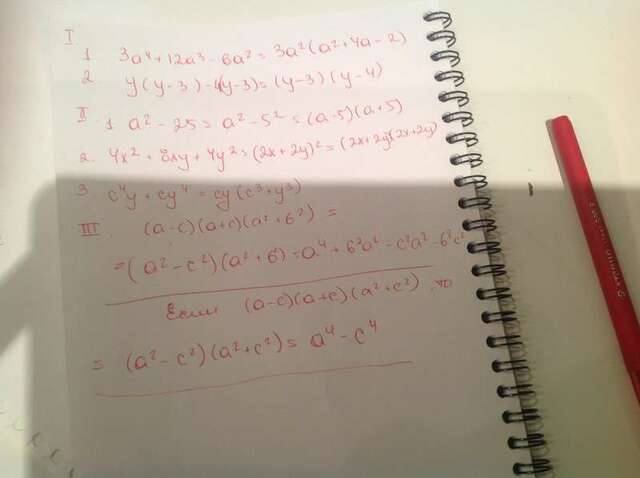 I
1 3a⁴ + 12a³ - 6a² = 3a²(a² + 4a - 2)
2 y(y - 3) - 4(y - 3) = (y - 3)(y - 4)
II 1 a² - 25 = a² - 5² = (a - 5)(a + 5)
2. 4x² + 8xy + 4y² = (2x + 2y)² = (2x + 2y)(2x + 2y)
3 c⁴y + cy⁴ = cy(c³ + y³)
III (a - c)(a + c)(a² + b²) =
= (a² - c²)(a² + b) = a⁴ + b²a² - c²a² - b²c²
Если (a - c)(a + c)(a² + c²), то
= (a² - c²)(a² + c²) = a⁴ - c⁴